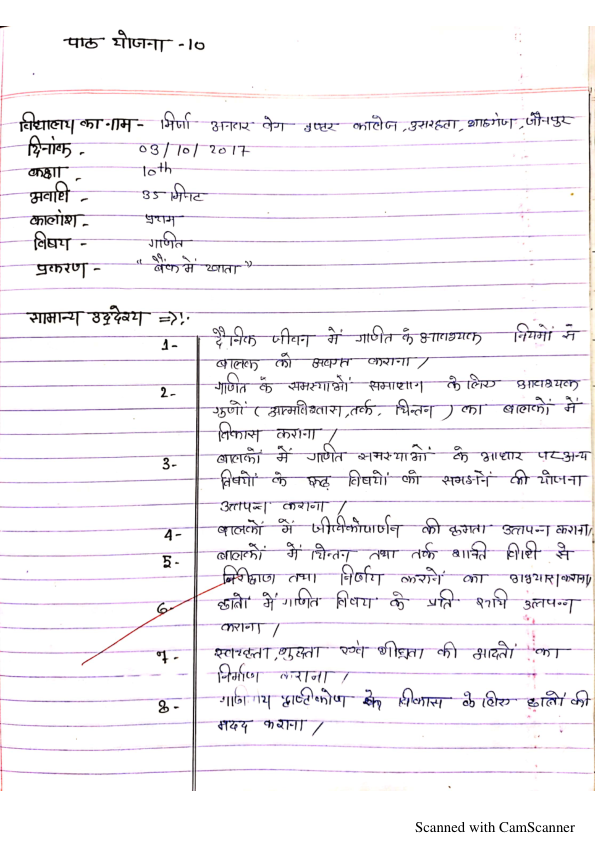 पाठ योजना -10
विद्यालय का नाम - मिर्जा अनवर बेग इण्टर कालेज, उसरहता, शाहगंज, जौनपुर
दिनांक - 03/10/2017
कक्षा - 10th
अवधि - 35 मिनट
कालांश - प्रथम
विषय - गणित
प्रकरण - " बैंक में खाता "
सामान्य उद्देश्य ⇒:
1- दैनिक जीवन में गणित के आवश्यक नियमों से
बालक को अवगत कराना /
2- गणित के समस्याओं समाधान के लिए आवश्यक
गुणों ( आत्मविश्वास, तर्क, चिन्तन ) का बालकों में
विकास कराना /
3- बालकों में गणित समस्याओं के आधार पर अन्य
विषयों के विषयों को समझनें की योजना
उत्तपन्न कराना /
4- बालकों में जीविकोपार्जन की क्षमता उत्तपन्न कराना/
5- बालकों में चिन्तन तथा तर्क शक्ति विधि से
तथा निर्णय कराने का कराना/
6- छात्रों में गणित विषय के प्रति रूचि उत्तपन्न
कराना /
7- स्वच्छता, शुद्धता एवं शीघ्रता की आदतों का
निर्माण कराना /
8- गणितिय दृष्टिकोण के विकास के लिए छात्रों की
मदद कराना /
Scanned with CamScanner